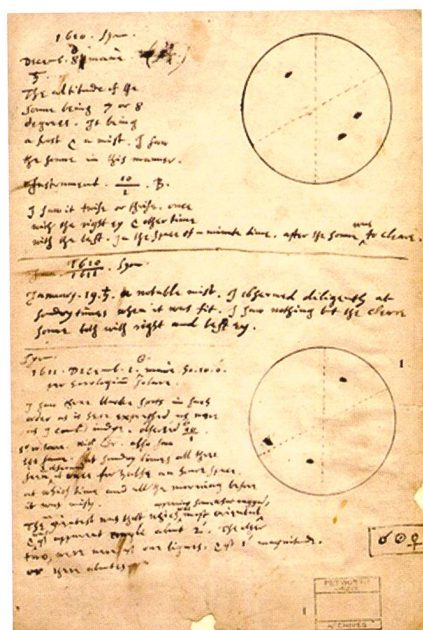 1610. Syon.
Decemb. 8 mane
The altitude of the
sonne being 7 or 8
degrees. It being
a frost & a mist. I saw
the sonne in this manner.
Instrument. 10/1 . B.
I saw it twise or thrise. once
with the right ey & other time
with the left. In the space of a minute time. after the sonne was to cleare.
1610/1611 Syon.
January. 19. ♄. a notable mist. I observed diligently at
sondry times when it was fit. I saw nothing but the cleare
sonne both with right and left ey.
Syon.
1611. Decemb. 1. mane ho. 10. 0.
per horologium solare.
I saw three blacke spots in such
order as is here expressed as nere
as I could judge. observed 10/1
also saw
the same. at sondry times all there
seen, & were for halfe an houre space.
at which time and all the morning before
it was misty.
The greatest was that which most oriental,
apparent about 2'. The other
two, were 1' magnitude.
or there abouts
1
PETWORTH
HOUSE
ARCHIVES
1